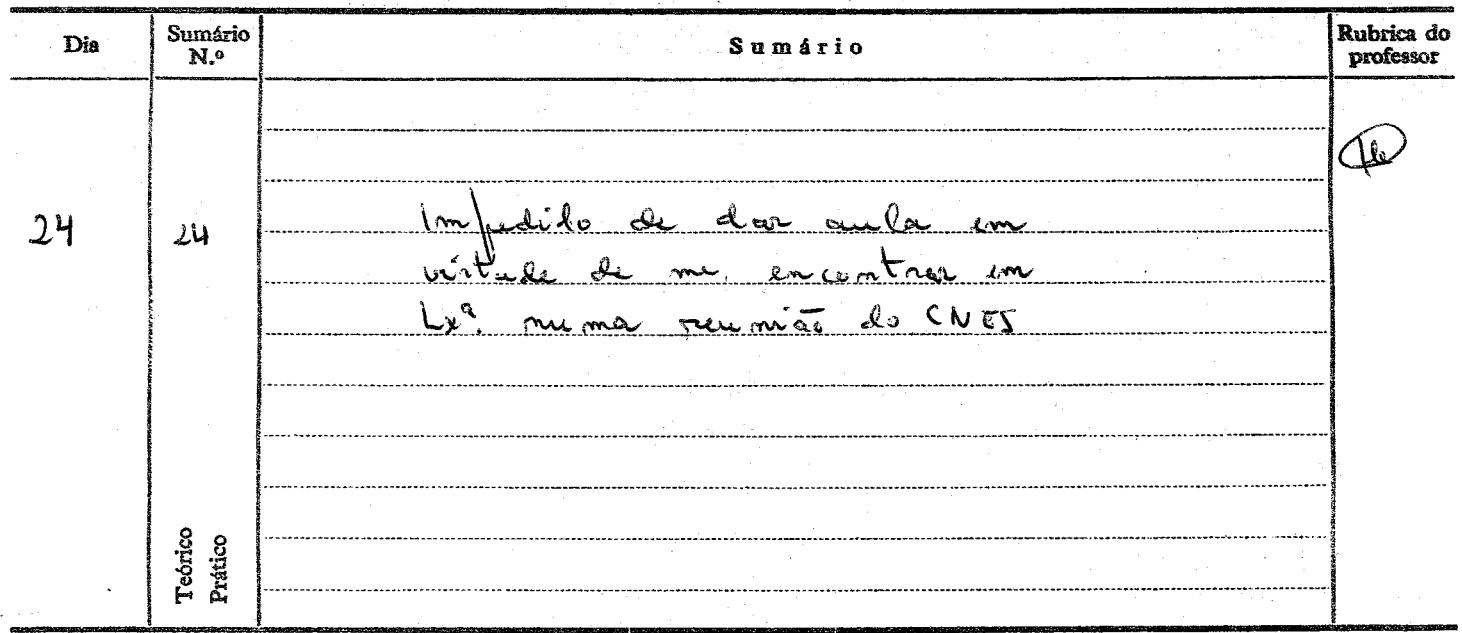 Dia
Sumário N.º
Sumário
Rubrica do professor
24
24
Impedido de dar aula em
virtude de me encontrar em
Lxª. numa reunião do CNES
Teórico
Prático